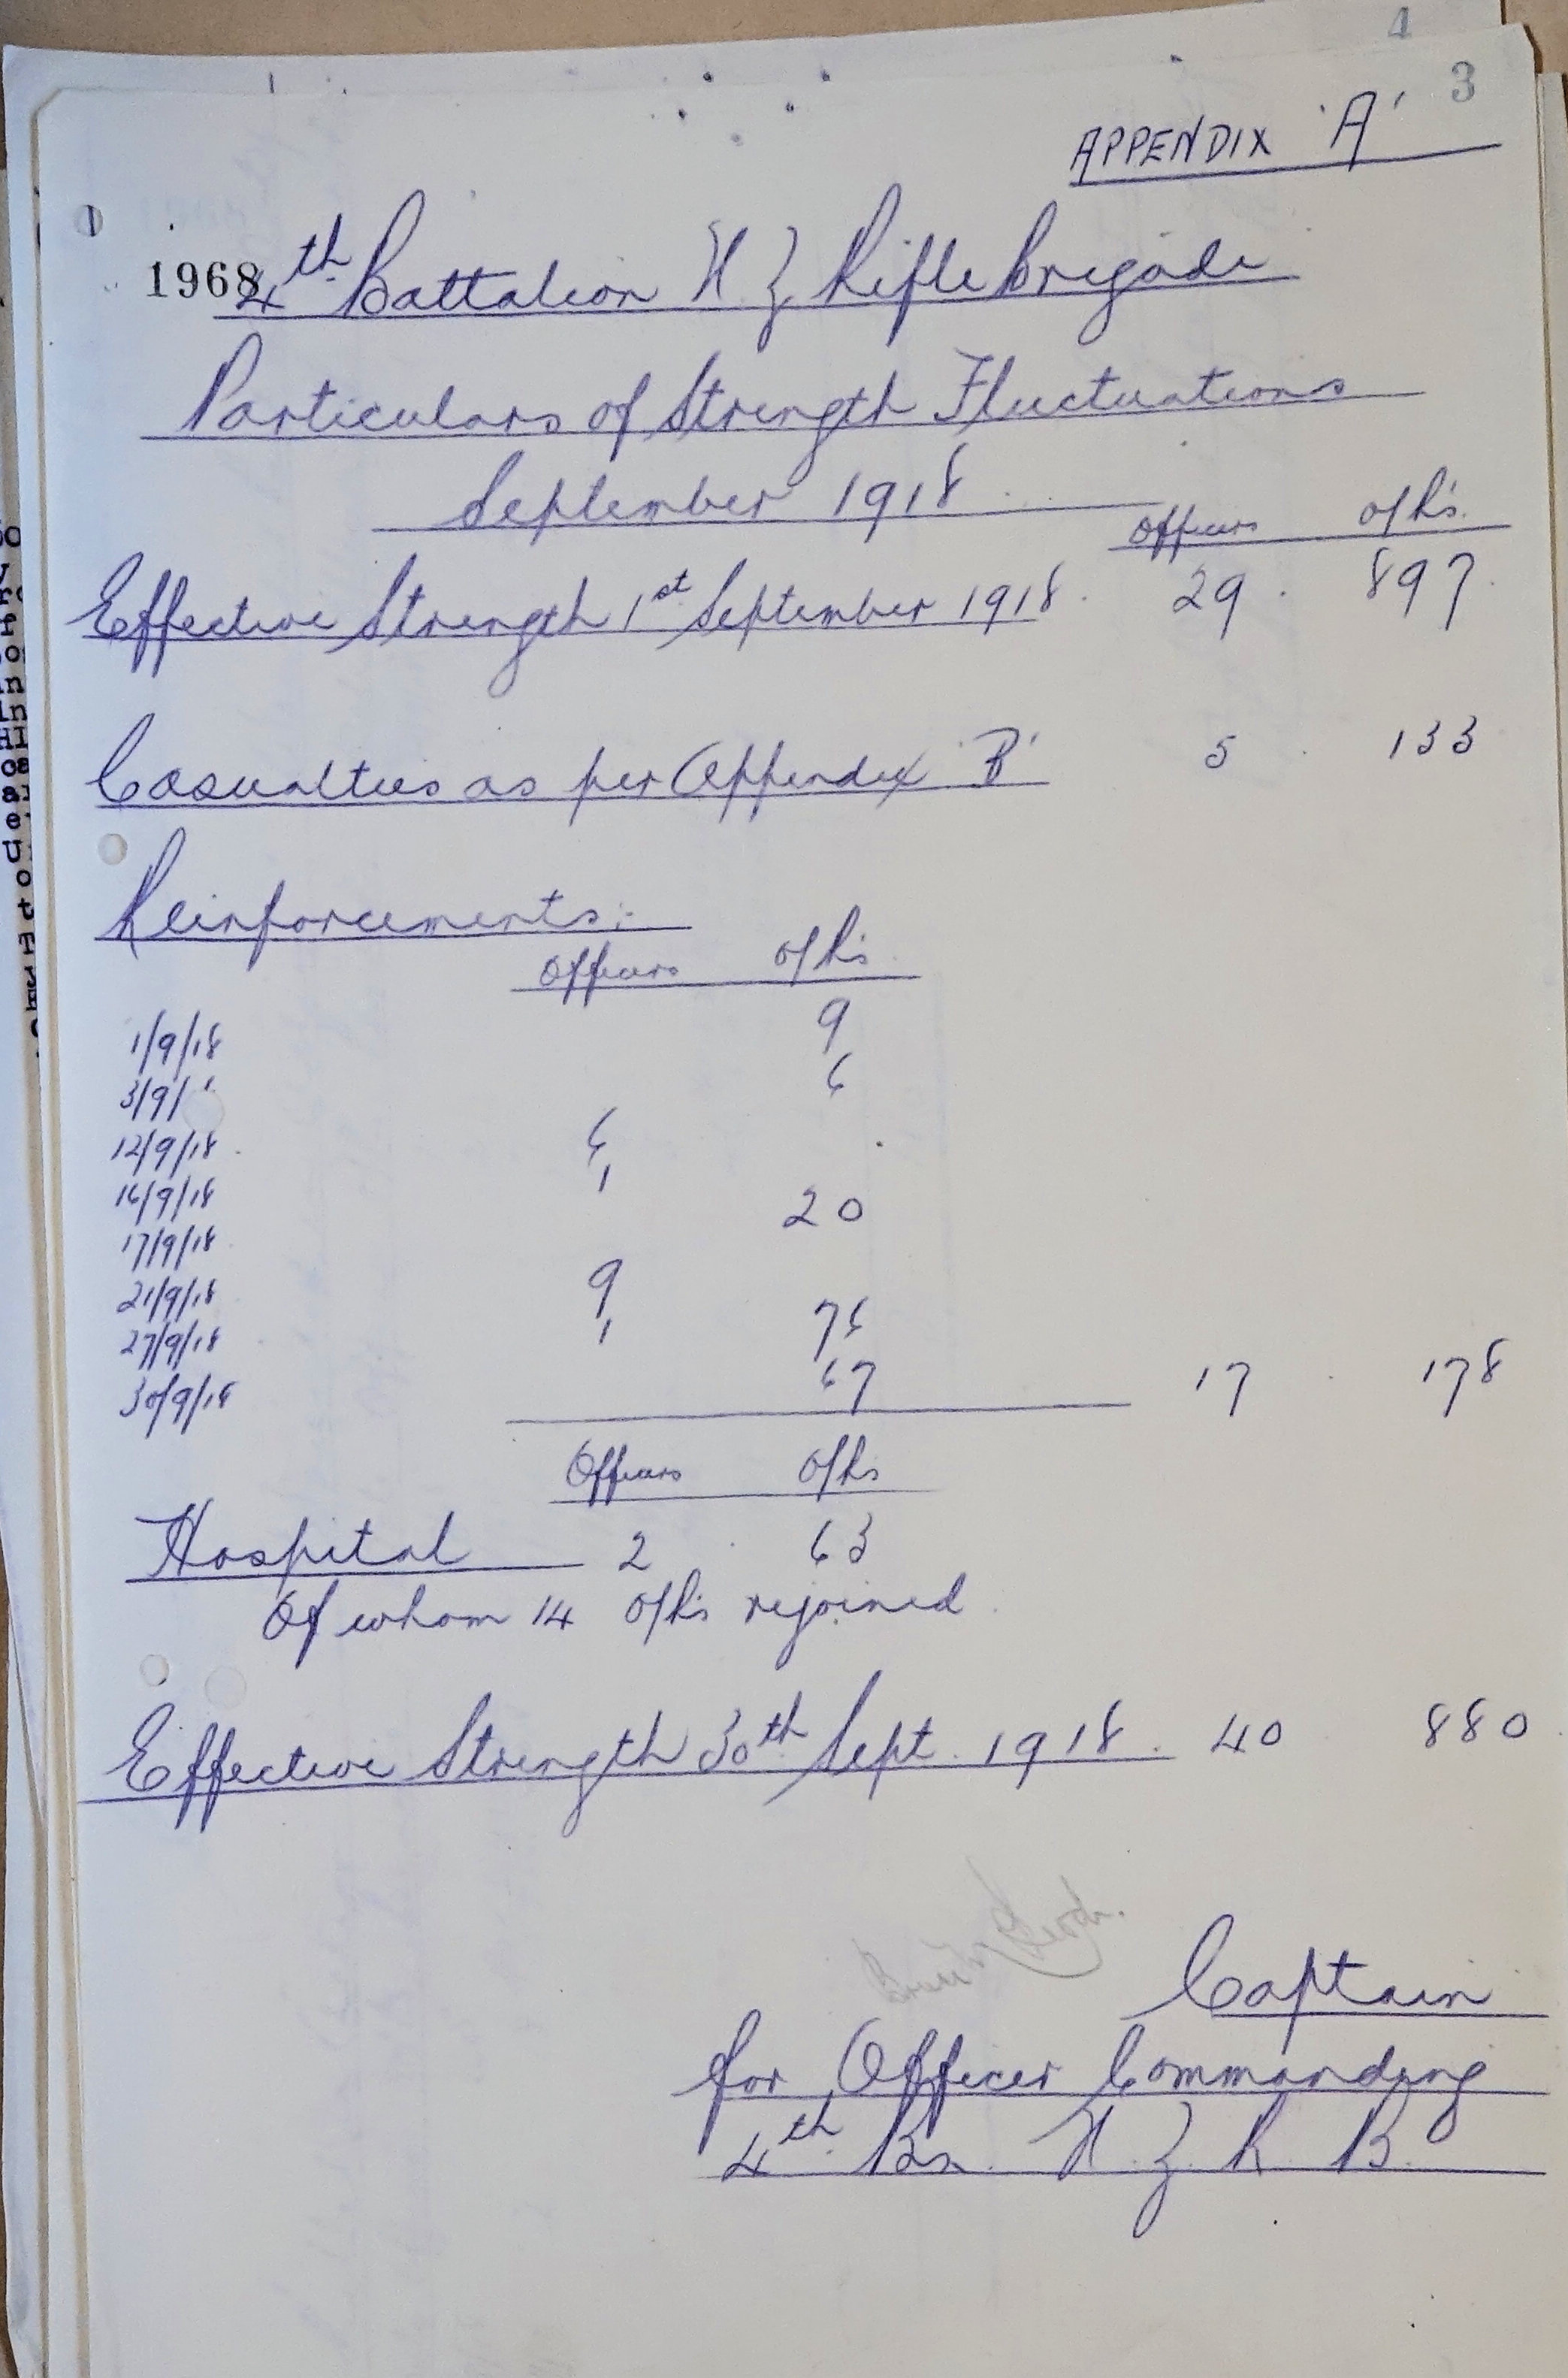 4
3
APPENDIX 'A'
1968
4th Battalion N Z Rifle Brigade
Particulars of Strength Fluctuations
September 1918
Officers O/R's
Effective Strength 1st September 1918. 29 897
Casualties as per Appendix 'B' 5 133
Reinforcements:-
Officers O/R's
1/9/18 9
3/9/' 6
12/9/18 6
16/9/18 1
17/9/18 20
21/9/18 9
27/9/18 1 76
30/9/18 67 17 178
Officers O/Rs
Hospital 2 63
Of whom 14 O/R's rejoined
Effective Strength 30th Sept. 1918. 40 880
Captain
for Officer Commanding
4th Bn. N. Z. R. B.